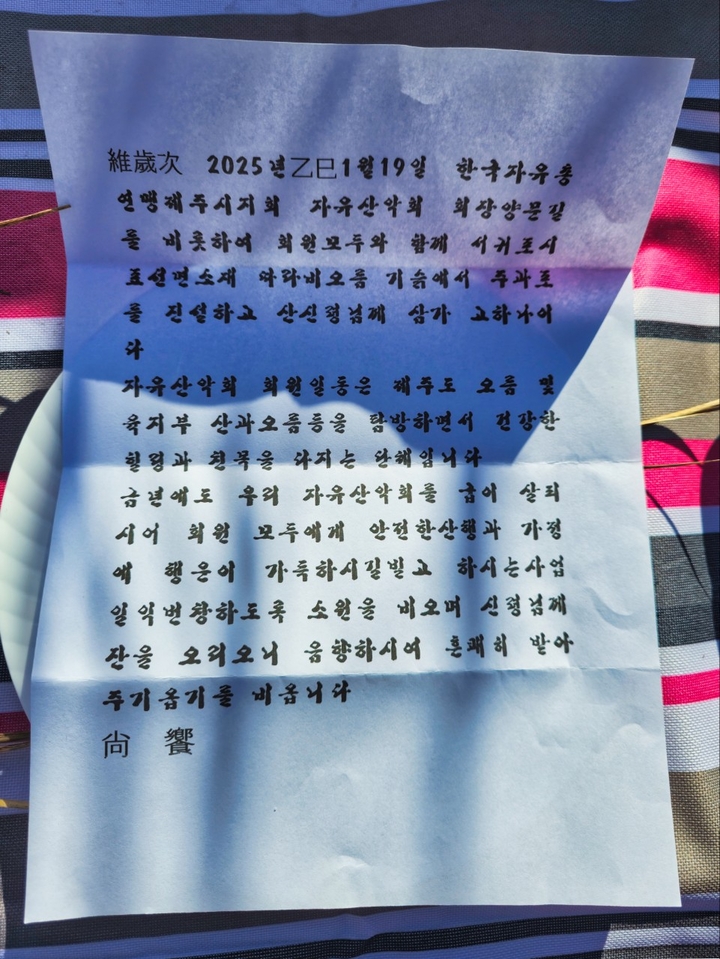 維歲次 2025년乙巳1월19일 한국자유총
연맹제주시지회 자유산악회 회장양문길
를 비롯하여 회원모두와 함께 서귀포시
표선면소재 따라비오름 기슭에서 주과포
를 진설하고 산신령님께 삼가 고하나이
다
자유산악회 회원일동은 제주도 오름 및
육지부 산과오름등을 탐방하면서 건강한
힐링과 친목을 다지는 단체입니다
금년에도 우리 자유산악회를 굽이 살피
시어 회원 모두에게 안전한산행과 가정
에 행운이 가득하시길빌고 하시는사업
일익번창하도록 소원을 비오며 신령님께
잔을 오리오니 음향하시여 흔쾌히 받아
주기옵기를 비옵니다
尙 饗